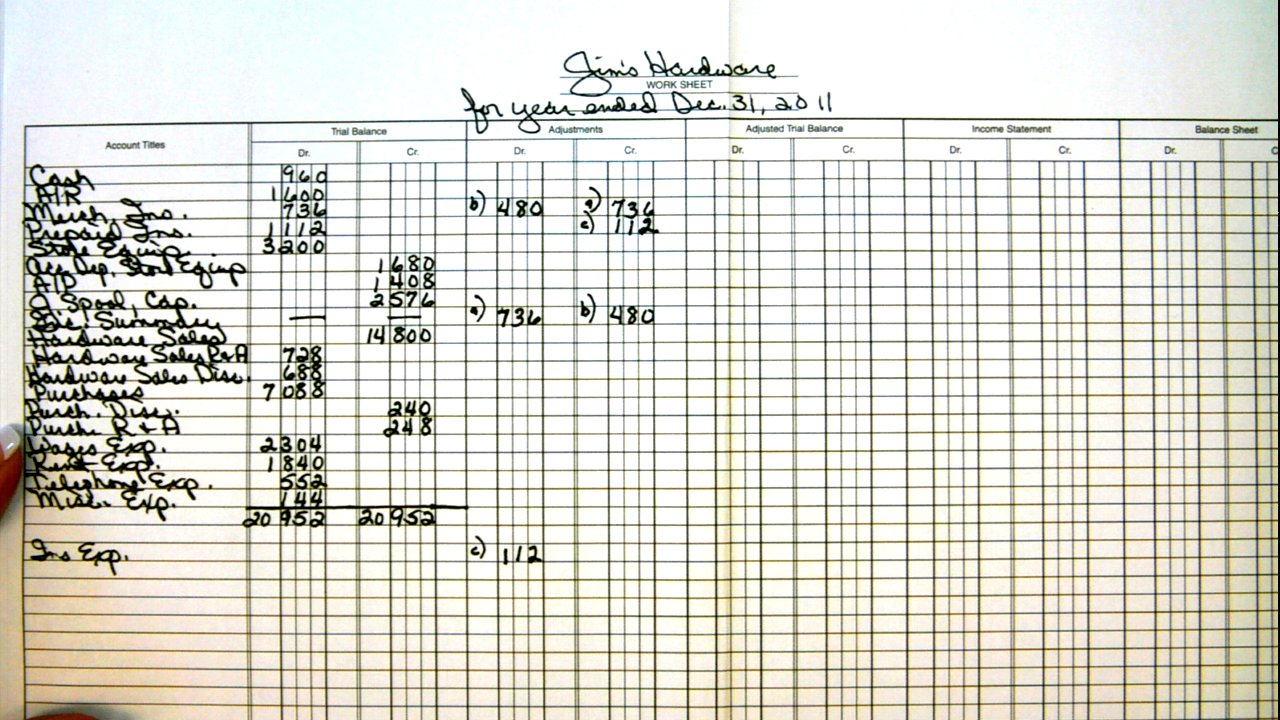 Jim's Hardware
WORK SHEET
for year ended Dec. 31, 2011
Account Titles Trial Balance Adjustments Adjusted Trial Balance Income Statement Balance Sheet
Dr. Cr. Dr. Cr. Dr. Cr. Dr. Cr. Dr. C
Cash 960
A/R 1600
Merch. Ins. 736 b) 480 a) 736
Prepaid Ins. 1112 c) 112
Store Equip. 3200
Acc. Dep. Store Equip 1680
A/P 1408
J. Spool, Cap. 2576
Inc. Summary — — a) 736 b) 480
Hardware Sales 14800
Hardware Sales R&A 728
Hardware Sales Disc. 688
Purchases 7088
Purch. Disc. 240
Purch. R&A 248
Wages Exp. 2304
Rent Exp. 1840
Telephone Exp. 552
Misc. Exp. 144
20952 20952
Ins Exp. c) 112